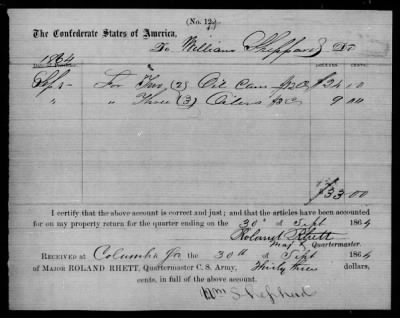 (No. 12.)
The Confederate States of America,
To William Sheppard Dr
DOLLARS. CENTS.
1864
Sept For Two (2) Oil Cans $24 00
" " Three (3) Oilers 9 00
$33.00
I certify that the above account is correct and just; and that the articles have been accounted
for on my property return for the quarter ending on the 30th of Sept 1864
Roland Rhett
Maj & Quartermaster.
RECEIVED at Columbia the 30th of Sept 1864
of Major ROLAND RHETT, Quartermaster C. S. Army, Thirty three dollars,
cents, in full of the above account.
Wm Shephard